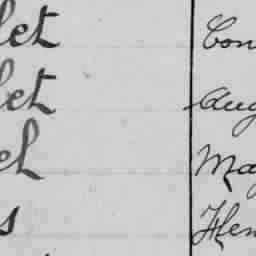 let Con
let Aug
el May
s Hen